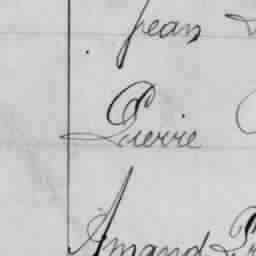 Jean
Pierre
Amand